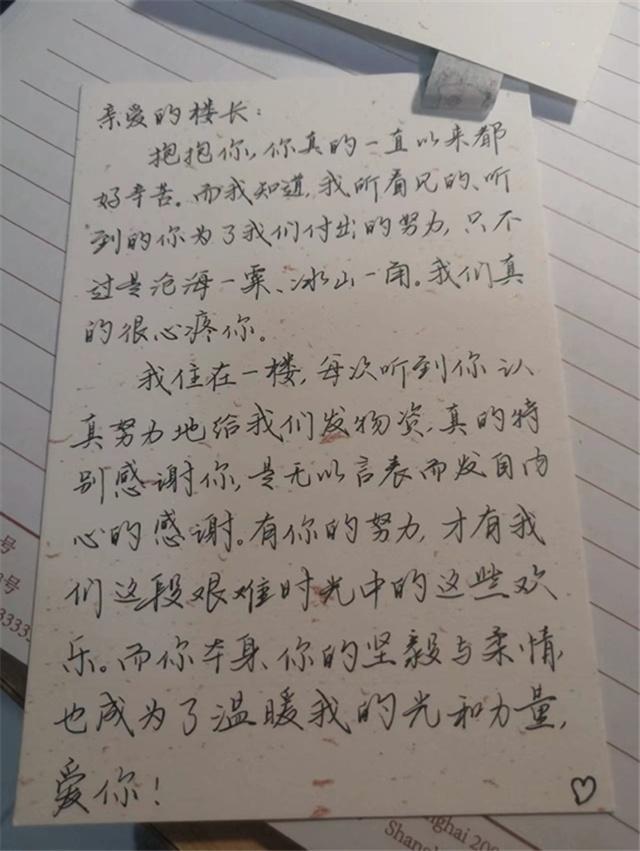 亲爱的楼长:
抱抱你,你真的一直以来都
好辛苦。而我知道,我所看见的、听
到的你为了我们付出的努力,只不
过是沧海一粟、冰山一角。我们真
的很心疼你。
我住在一楼,每次听到你认
真努力地给我们发物资,真的特
别感谢你,是无以言表而发自内
心的感谢。有你的努力,才有我
们这段艰难时光中的这些欢
乐。而你本身、你的坚毅与柔情,
也成为了温暖我的光和力量,
爱你!
♡
号
号
3333
Shanghai 200
Shang